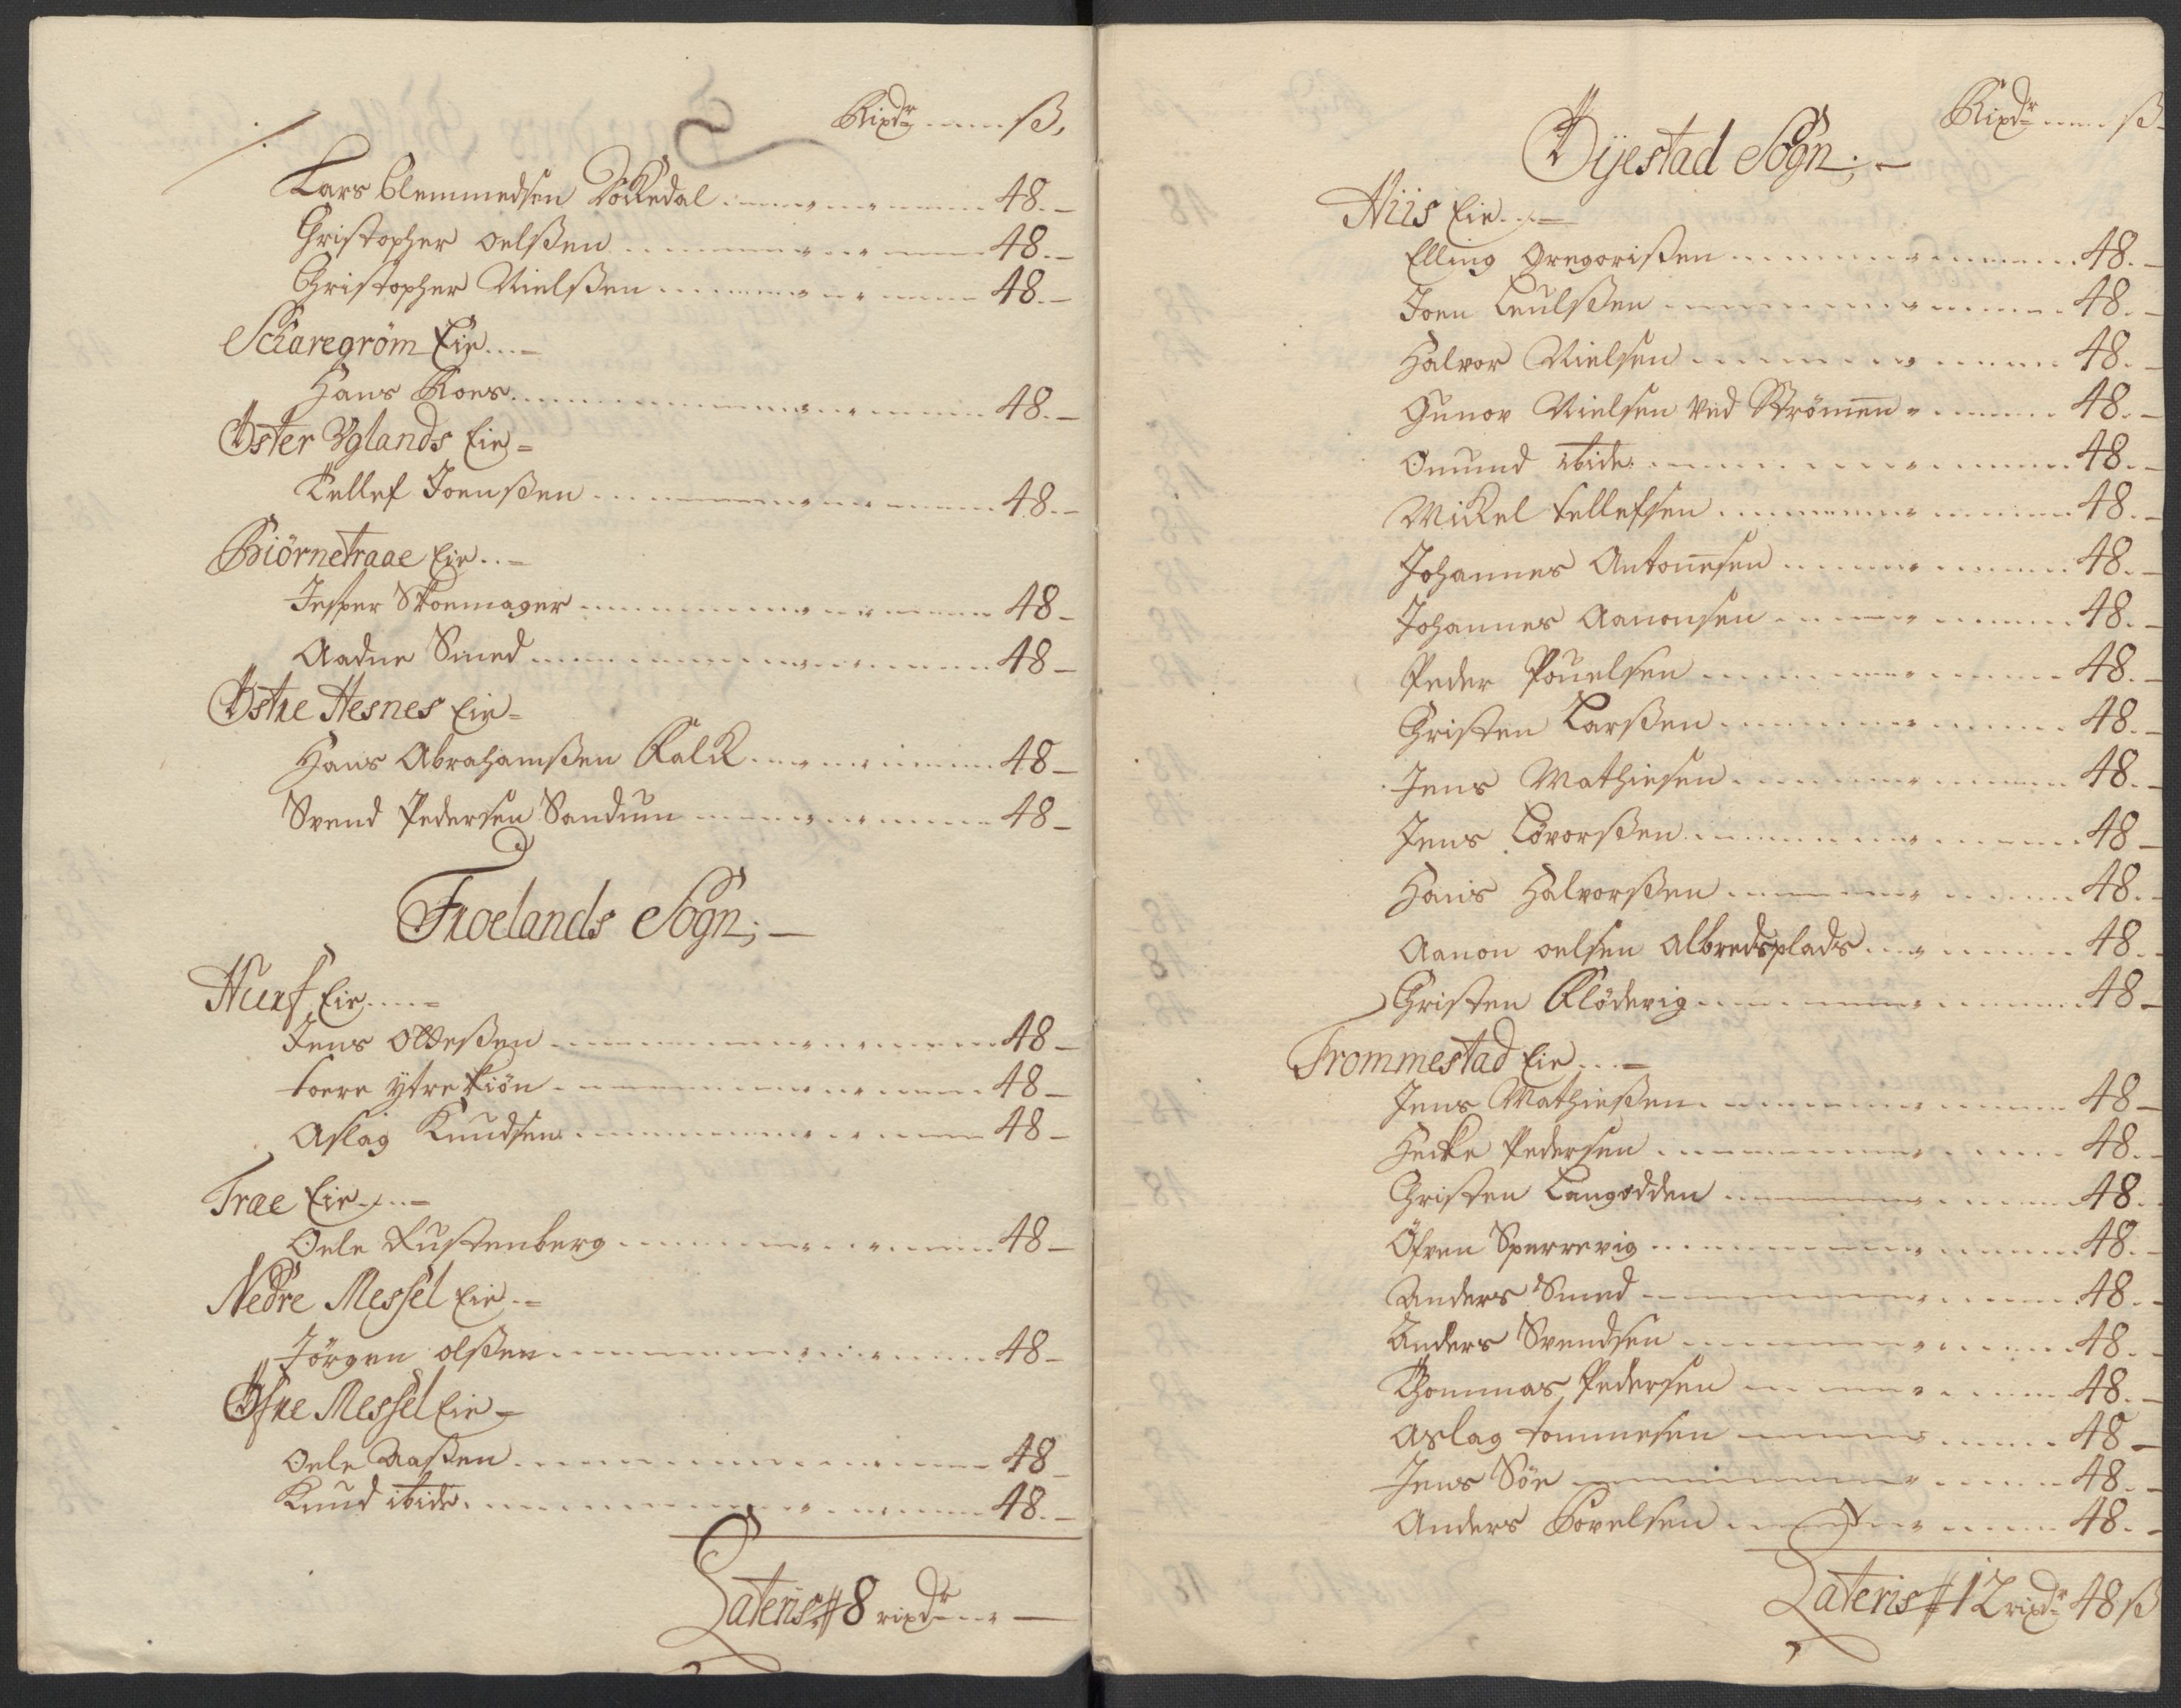 Rixdr ß,
Lars Clemmedsen Døkkedal 48.
Christopher Oelßen 48.
Christopher Nielßen 48.
Schiaregröm Eie
Hans Roes 48.
Öster Öglands Eie
Tellef Joenßen 48.
Biörnetraae Eie
Jesper Skoemager 48
Aadne Smed 48
Östre Hesnes Eie
Hans Abrahamßen Kalk 48
Svend Pedersen Sandum 48
Froelands Sogn;
Hurf Eie
Jens Olleßen 48
Toere ytre Kiön 48
Aslag Knudsen 48
Trae Eie
Oele Rustenberg 48
Nedre Messel Eie
Jörgen Olßen 48
Öfre Messel Eie
Oele Aaßen 48
Knud ibide. 48.
Lateris 8 rixdr
Rixdr ß
Öijestad Sogn;
Hiis Eie
Elling Gregorißen 48.
Joen Leulßen 48.
Halvor Nielsen 48.
Gunov Nielsen ved Strömen 48.
Omund ibide 48.
Mikel Tellefsen 48.
Johannes Antonesen 48.
Johannes Aanonsen 48.
Peder Pouelsen 48.
Christen Larßen 48.
Jens Mathiesen 48.
Jens Lövorßen 48
Hans Halvorßen 48.
Aanon Oelsen Albredsplads 48.
Christen Klödevig 48
Trommestad Eie
Jens Mathießen 48
Hecke Pedersen 48.
Christen Langodden 48.
Öfven Sperrevig 48.
Anders Smed 48.
Anders Svendsen 48.
Thommas Pedersen 48.
Aslag Tommesen 48
Jens Sör 48.
Anders Povelsen 48.
Lateris 12 rixdr 48 ß